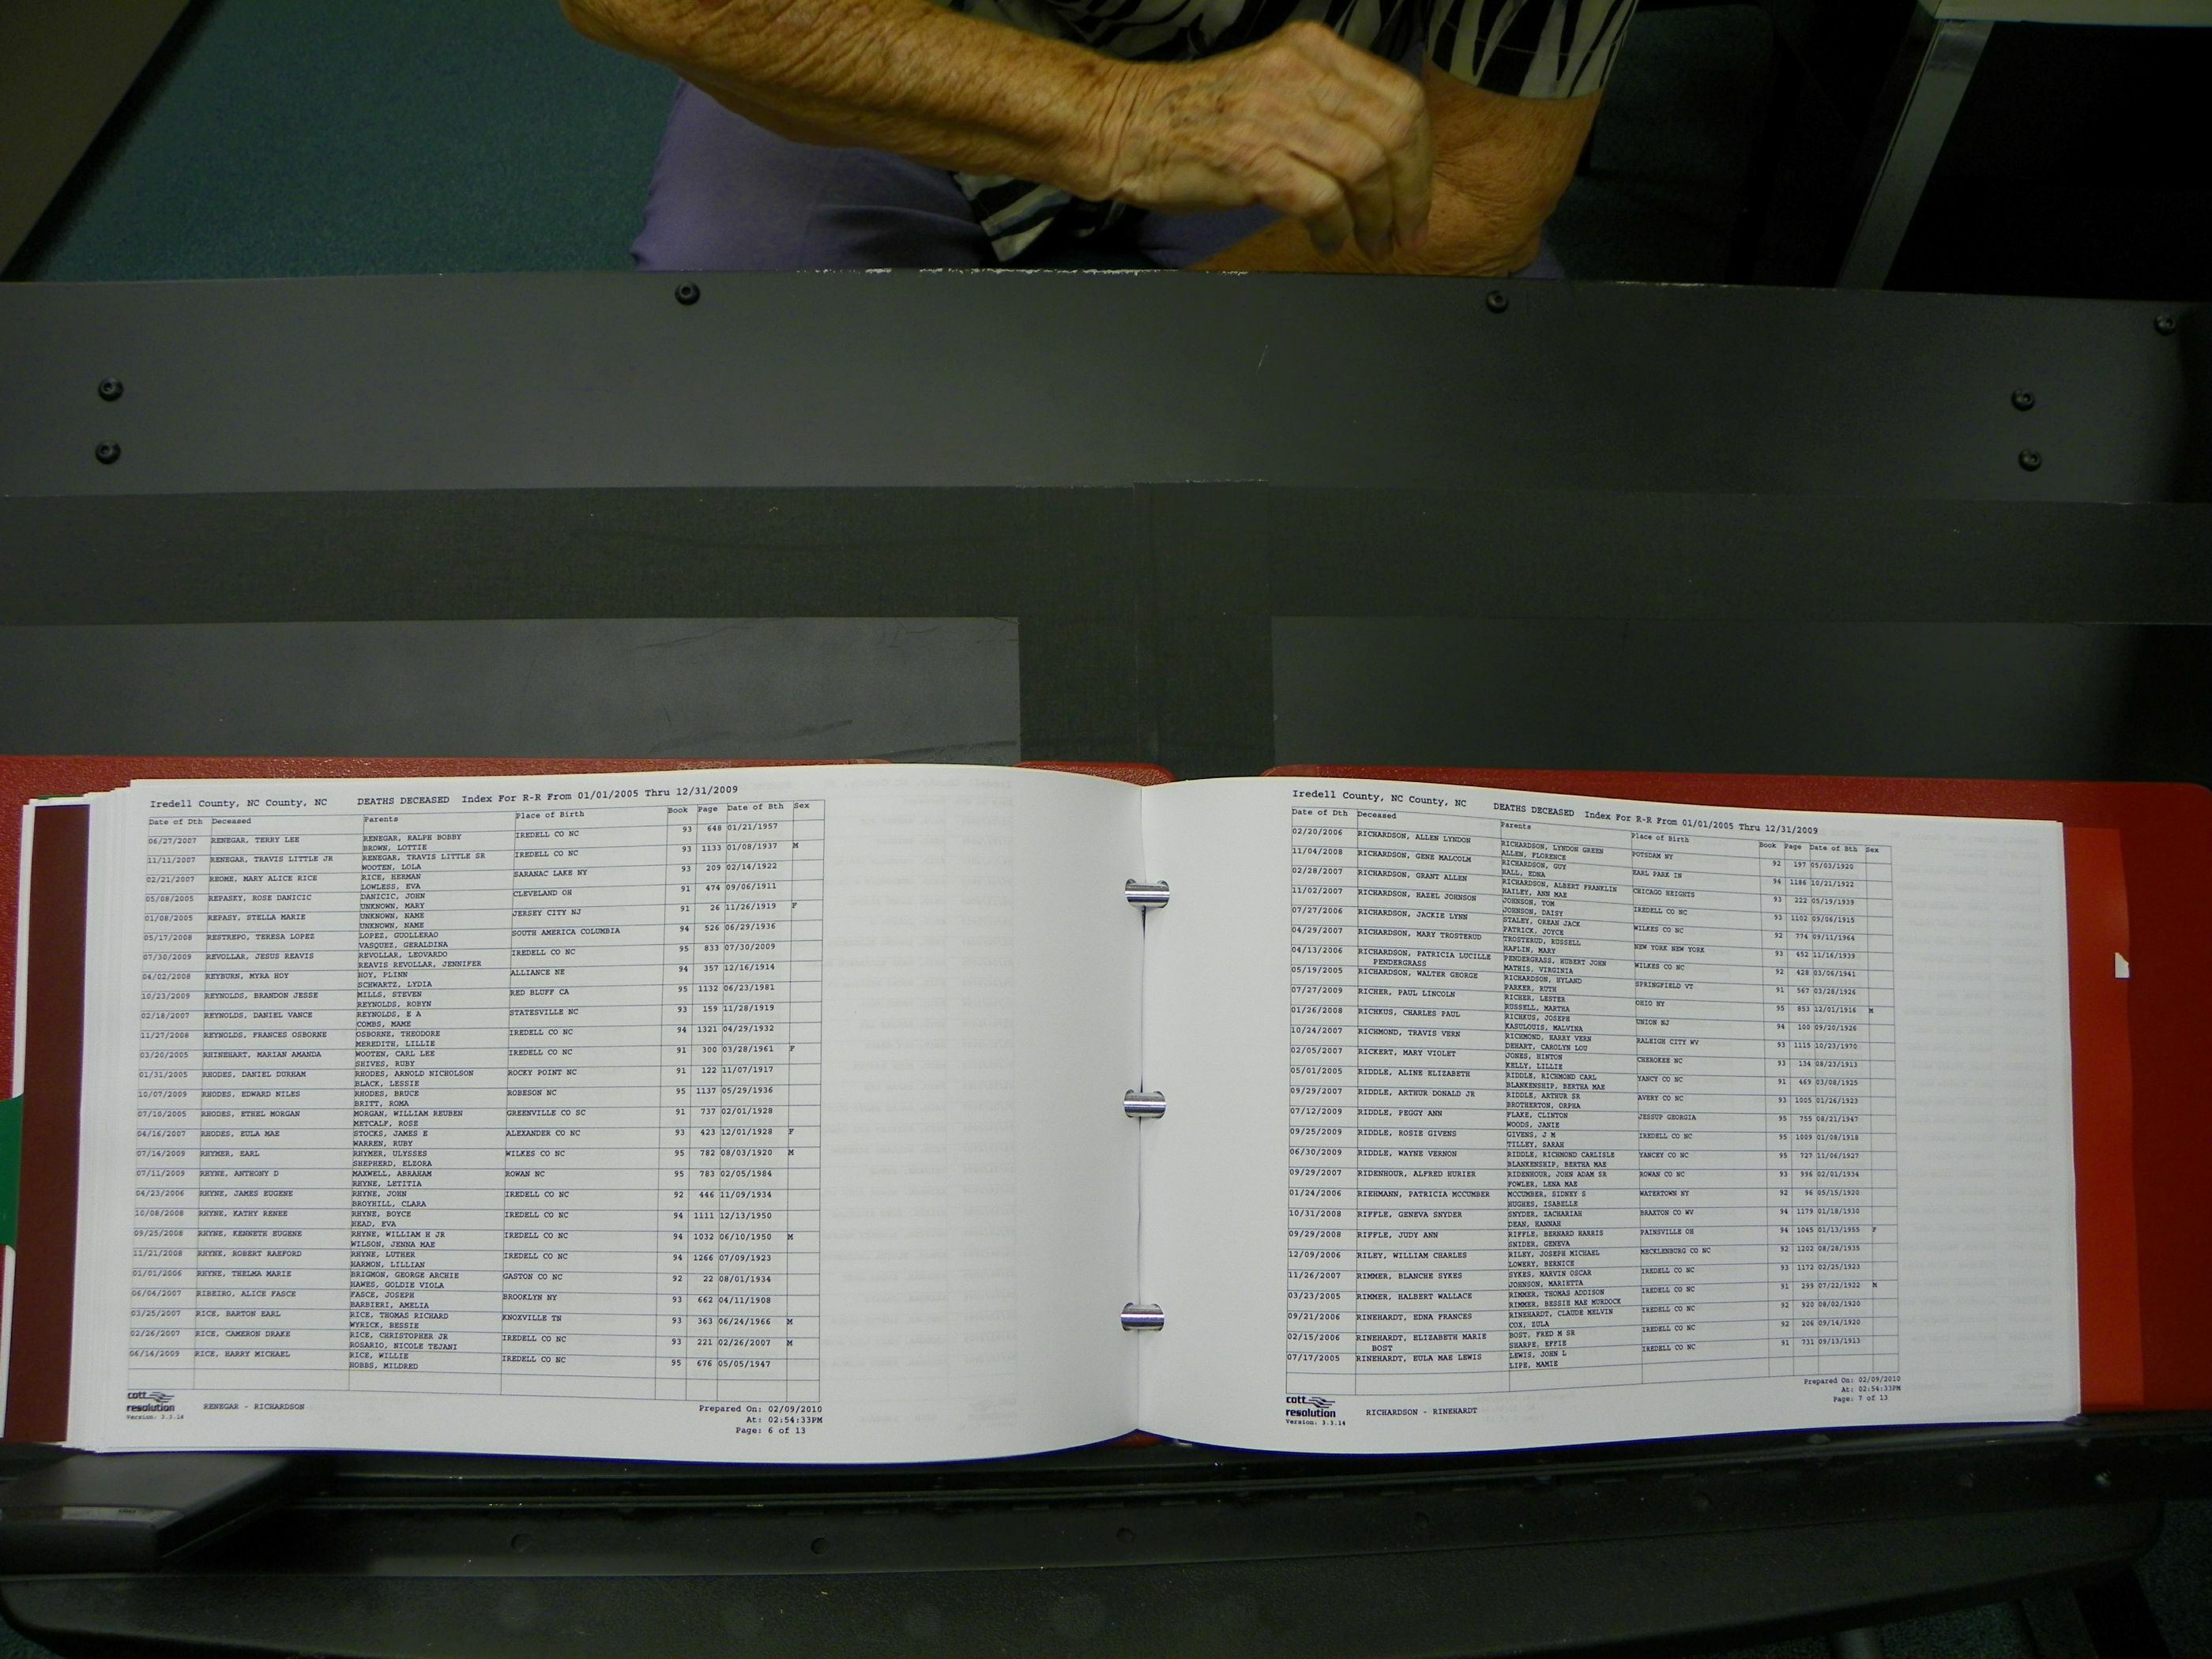 Iredell County, NC County, NC DEATHS DECEASED Index For R-R From 01/01/2005 Thru 12/31/2009
Date of Dth Deceased Parents Place of Birth Book Page Date of Bth Sex
06/27/2007 RENEGAR, TERRY LEE RENEGAR, RALPH BOBBY IREDELL CO NC 93 648 01/21/1957
BROWN, LOTTIE
11/11/2007 RENEGAR, TRAVIS LITTLE JR RENEGAR, TRAVIS LITTLE SR IREDELL CO NC 93 1133 01/08/1937 M
WOOTEN, LOLA
02/21/2007 REOME, MARY ALICE RICE RICE, HERMAN SARANAC LAKE NY 93 209 02/14/1922
LOWLESS, EVA
05/08/2005 REPASKY, ROSE DANICIC DANICIC, JOHN CLEVELAND OH 91 474 09/06/1911
UNKNOWN, MARY
01/08/2005 REPASY, STELLA MARIE UNKNOWN, NAME JERSEY CITY NJ 91 26 11/26/1919 F
UNKNOWN, NAME
05/17/2008 RESTREPO, TERESA LOPEZ LOPEZ, GUOLLERAO SOUTH AMERICA COLUMBIA 94 526 06/29/1936
VASQUEZ, GERALDINA
07/30/2009 REVOLLAR, JESUS REAVIS REVOLLAR, LEOVARDO IREDELL CO NC 95 833 07/30/2009
REAVIS REVOLLAR, JENNIFER
04/02/2008 REYBURN, MYRA HOY HOY, PLINN ALLIANCE NE 94 357 12/16/1914
SCHWARTZ, LYDIA
10/23/2009 REYNOLDS, BRANDON JESSE MILLS, STEVEN RED BLUFF CA 95 1132 06/23/1981
REYNOLDS, ROBYN
02/18/2007 REYNOLDS, DANIEL VANCE REYNOLDS, E A STATESVILLE NC 93 159 11/28/1919
COMBS, MAME
11/27/2008 REYNOLDS, FRANCES OSBORNE OSBORNE, THEODORE IREDELL CO NC 94 1321 04/29/1932
MEREDITH, LILLIE
03/20/2005 RHINEHART, MARIAN AMANDA WOOTEN, CARL LEE IREDELL CO NC 91 300 03/28/1961 F
SHIVES, RUBY
01/31/2005 RHODES, DANIEL DURHAM RHODES, ARNOLD NICHOLSON ROCKY POINT NC 91 122 11/07/1917
BLACK, LESSIE
10/07/2009 RHODES, EDWARD NILES RHODES, BRUCE ROBESON NC 95 1137 05/29/1936
BRITT, ROMA
07/10/2005 RHODES, ETHEL MORGAN MORGAN, WILLIAM REUBEN GREENVILLE CO SC 91 737 02/01/1928
METCALF, ROSE
04/16/2007 RHODES, EULA MAE STOCKS, JAMES E ALEXANDER CO NC 93 423 12/01/1928 F
WARREN, RUBY
07/14/2009 RHYMER, EARL RHYMER, ULYSSES WILKES CO NC 95 782 08/03/1920 M
SHEPHERD, ELZORA
07/11/2009 RHYNE, ANTHONY D MAXWELL, ABRAHAM ROWAN NC 95 783 02/05/1984
RHYNE, LETITIA
04/23/2006 RHYNE, JAMES EUGENE RHYNE, JOHN IREDELL CO NC 92 446 11/09/1934
BROYHILL, CLARA
10/08/2008 RHYNE, KATHY RENEE RHYNE, BOYCE IREDELL CO NC 94 1111 12/13/1950
HEAD, EVA
09/25/2008 RHYNE, KENNETH EUGENE RHYNE, WILLIAM H JR IREDELL CO NC 94 1032 06/10/1950 M
WILSON, JENNA MAE
11/21/2008 RHYNE, ROBERT RAEFORD RHYNE, LUTHER IREDELL CO NC 94 1266 07/09/1923
HARMON, LILLIAN
01/01/2006 RHYNE, THELMA MARIE BRIGMON, GEORGE ARCHIE GASTON CO NC 92 22 08/01/1934
HAWES, GOLDIE VIOLA
06/04/2007 RIBEIRO, ALICE FASCE FASCE, JOSEPH BROOKLYN NY 93 662 04/11/1908
BARBIERI, AMELIA
03/25/2007 RICE, BARTON EARL RICE, THOMAS RICHARD KNOXVILLE TN 93 363 06/24/1966 M
WYRICK, BESSIE
02/26/2007 RICE, CAMERON DRAKE RICE, CHRISTOPHER JR IREDELL CO NC 93 221 02/26/2007 M
ROSARIO, NICOLE TEJANI
06/14/2009 RICE, HARRY MICHAEL RICE, WILLIE IREDELL CO NC 95 676 05/05/1947
HOBBS, MILDRED
cott
resolution RENEGAR - RICHARDSON Prepared On: 02/09/2010
Version: 3.3.14 At: 02:54:33PM
Page: 6 of 13
Iredell County, NC County, NC DEATHS DECEASED Index For R-R From 01/01/2005 Thru 12/31/2009
Date of Dth Deceased Parents Place of Birth Book Page Date of Bth Sex
02/20/2006 RICHARDSON, ALLEN LYNDON RICHARDSON, LYNDON GREEN POTSDAM NY 92 197 05/03/1920
ALLEN, FLORENCE
11/04/2008 RICHARDSON, GENE MALCOLM RICHARDSON, GUY EARL PARK IN 94 1186 10/21/1922
HALL, EDNA
02/28/2007 RICHARDSON, GRANT ALLEN RICHARDSON, ALBERT FRANKLIN CHICAGO HEIGHTS 93 222 05/19/1939
HAILEY, ANN MAE
11/02/2007 RICHARDSON, HAZEL JOHNSON JOHNSON, TOM IREDELL CO NC 93 1102 09/06/1915
JOHNSON, DAISY
07/27/2006 RICHARDSON, JACKIE LYNN STALEY, OREAN JACK WILKES CO NC 92 774 09/11/1964
PATRICK, JOYCE
04/29/2007 RICHARDSON, MARY TROSTERUD TROSTERUD, RUSSELL NEW YORK NEW YORK 93 452 11/16/1939
HAFLIN, MARY
04/13/2006 RICHARDSON, PATRICIA LUCILLE PENDERGRASS, HUBERT JOHN WILKES CO NC 92 428 03/06/1941
PENDERGRASS MATHIS, VIRGINIA
05/19/2005 RICHARDSON, WALTER GEORGE RICHARDSON, HYLAND SPRINGFIELD VT 91 567 03/28/1926
PARKER, RUTH
07/27/2009 RICHER, PAUL LINCOLN RICHER, LESTER OHIO NY 95 853 12/01/1916 M
RUSSELL, MARTHA
01/26/2008 RICHKUS, CHARLES PAUL RICHKUS, JOSEPH UNION NJ 94 100 09/20/1926
KASULOUIS, MALVINA
10/24/2007 RICHMOND, TRAVIS VERN RICHMOND, HARRY VERN RALEIGH CITY WV 93 1115 10/23/1970
DEHART, CAROLYN LOU
02/05/2007 RICKERT, MARY VIOLET JONES, HINTON CHEROKEE NC 93 134 08/23/1913
KELLY, LILLIE
05/01/2005 RIDDLE, ALINE ELIZABETH RIDDLE, RICHMOND CARL YANCY CO NC 91 469 03/08/1925
BLANKENSHIP, BERTHA MAE
09/29/2007 RIDDLE, ARTHUR DONALD JR RIDDLE, ARTHUR SR AVERY CO NC 93 1005 01/26/1923
BROTHERTON, ORPHA
07/12/2009 RIDDLE, PEGGY ANN FLAKE, CLINTON JESSUP GEORGIA 95 755 08/21/1947
WOODS, JANIE
09/25/2009 RIDDLE, ROSIE GIVENS GIVENS, J M IREDELL CO NC 95 1009 01/08/1918
TILLEY, SARAH
06/30/2009 RIDDLE, WAYNE VERNON RIDDLE, RICHMOND CARLISLE YANCEY CO NC 95 727 11/06/1927
BLANKENSHIP, BERTHA MAE
09/29/2007 RIDENHOUR, ALFRED HURIER RIDENHOUR, JOHN ADAM SR ROWAN CO NC 93 996 02/01/1934
FOWLER, LENA MAE
01/24/2006 RIEHMANN, PATRICIA MCCUMBER MCCUMBER, SIDNEY S WATERTOWN NY 92 96 05/15/1920
HUGHES, ISABELLE
10/31/2008 RIFFLE, GENEVA SNYDER SNYDER, ZACHARIAH BRAXTON CO WV 94 1179 01/18/1930
DEAN, HANNAH
09/29/2008 RIFFLE, JUDY ANN RIFFLE, BERNARD HARRIS PAINSVILLE OH 94 1045 01/13/1955 F
SNIDER, GENEVA
12/09/2006 RILEY, WILLIAM CHARLES RILEY, JOSEPH MICHAEL MECKLENBURG CO NC 92 1202 08/28/1935
LOWERY, BERNICE
11/26/2007 RIMMER, BLANCHE SYKES SYKES, MARVIN OSCAR IREDELL CO NC 93 1172 02/25/1923
JOHNSON, MARIETTA
03/23/2005 RIMMER, HALBERT WALLACE RIMMER, THOMAS ADDISON IREDELL CO NC 91 299 07/22/1922 M
RIMMER, BESSIE MAE MURDOCK
09/21/2006 RINEHARDT, EDNA FRANCES RINEHARDT, CLAUDE MELVIN IREDELL CO NC 92 920 08/02/1920
COX, ZULA
02/15/2006 RINEHARDT, ELIZABETH MARIE BOST, FRED M SR IREDELL CO NC 92 206 09/14/1920
BOST SHARPE, EFFIE
07/17/2005 RINEHARDT, EULA MAE LEWIS LEWIS, JOHN L IREDELL CO NC 91 731 09/13/1913
LIPE, MAMIE
cott
resolution RICHARDSON - RINEHARDT Prepared On: 02/09/2010
Version: 3.3.14 At: 02:54:33PM
Page: 7 of 13